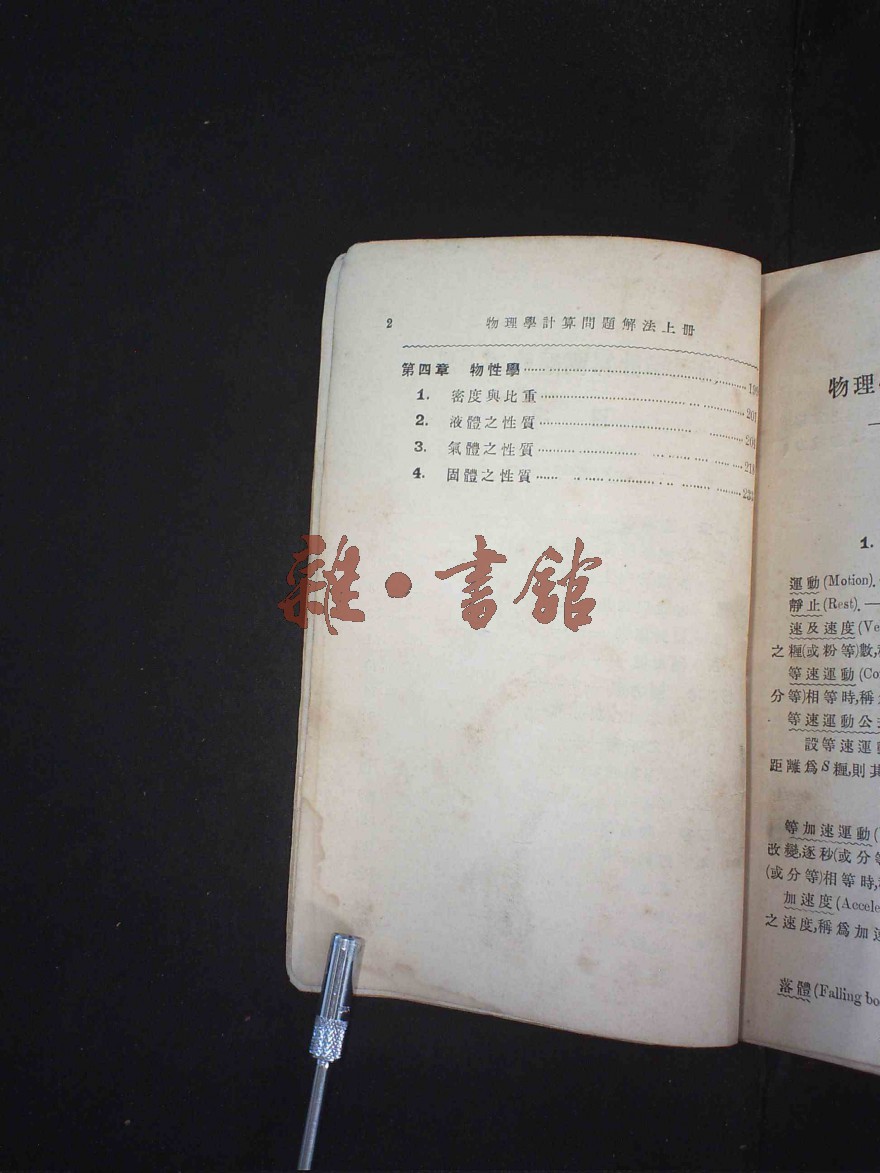 2 物理學計算問題解法上册
第四章 物性學
1. 密度與比重 201
2. 液體之性質
3. 氣體之性質
4. 固體之性質
雜·書館
物理
1.
運動(Motion).
靜止(Rest).—
速及速度(Ve
之糎(或粉等)數,
等速運動(Co
分等)相等時,稱
等速運動公
設等速運動
距離爲S糎,則其
等加速運動(
改變,逐秒(或分等
(或分等)相等時,
加速度(Accele
之速度,稱爲加速
落體(Falling bo